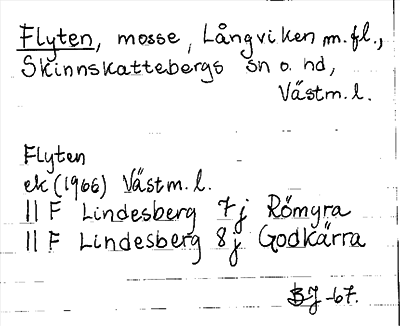 Flyten, mosse, Långviken m.fl.,
Skinnskattebergs sn o. hd,
Västm. l.
Flyten
ek (1966) Västm. l.
11 F Lindesberg 7 j Römyra
11 F Lindesberg 8 j Godkärra
BJ -67.